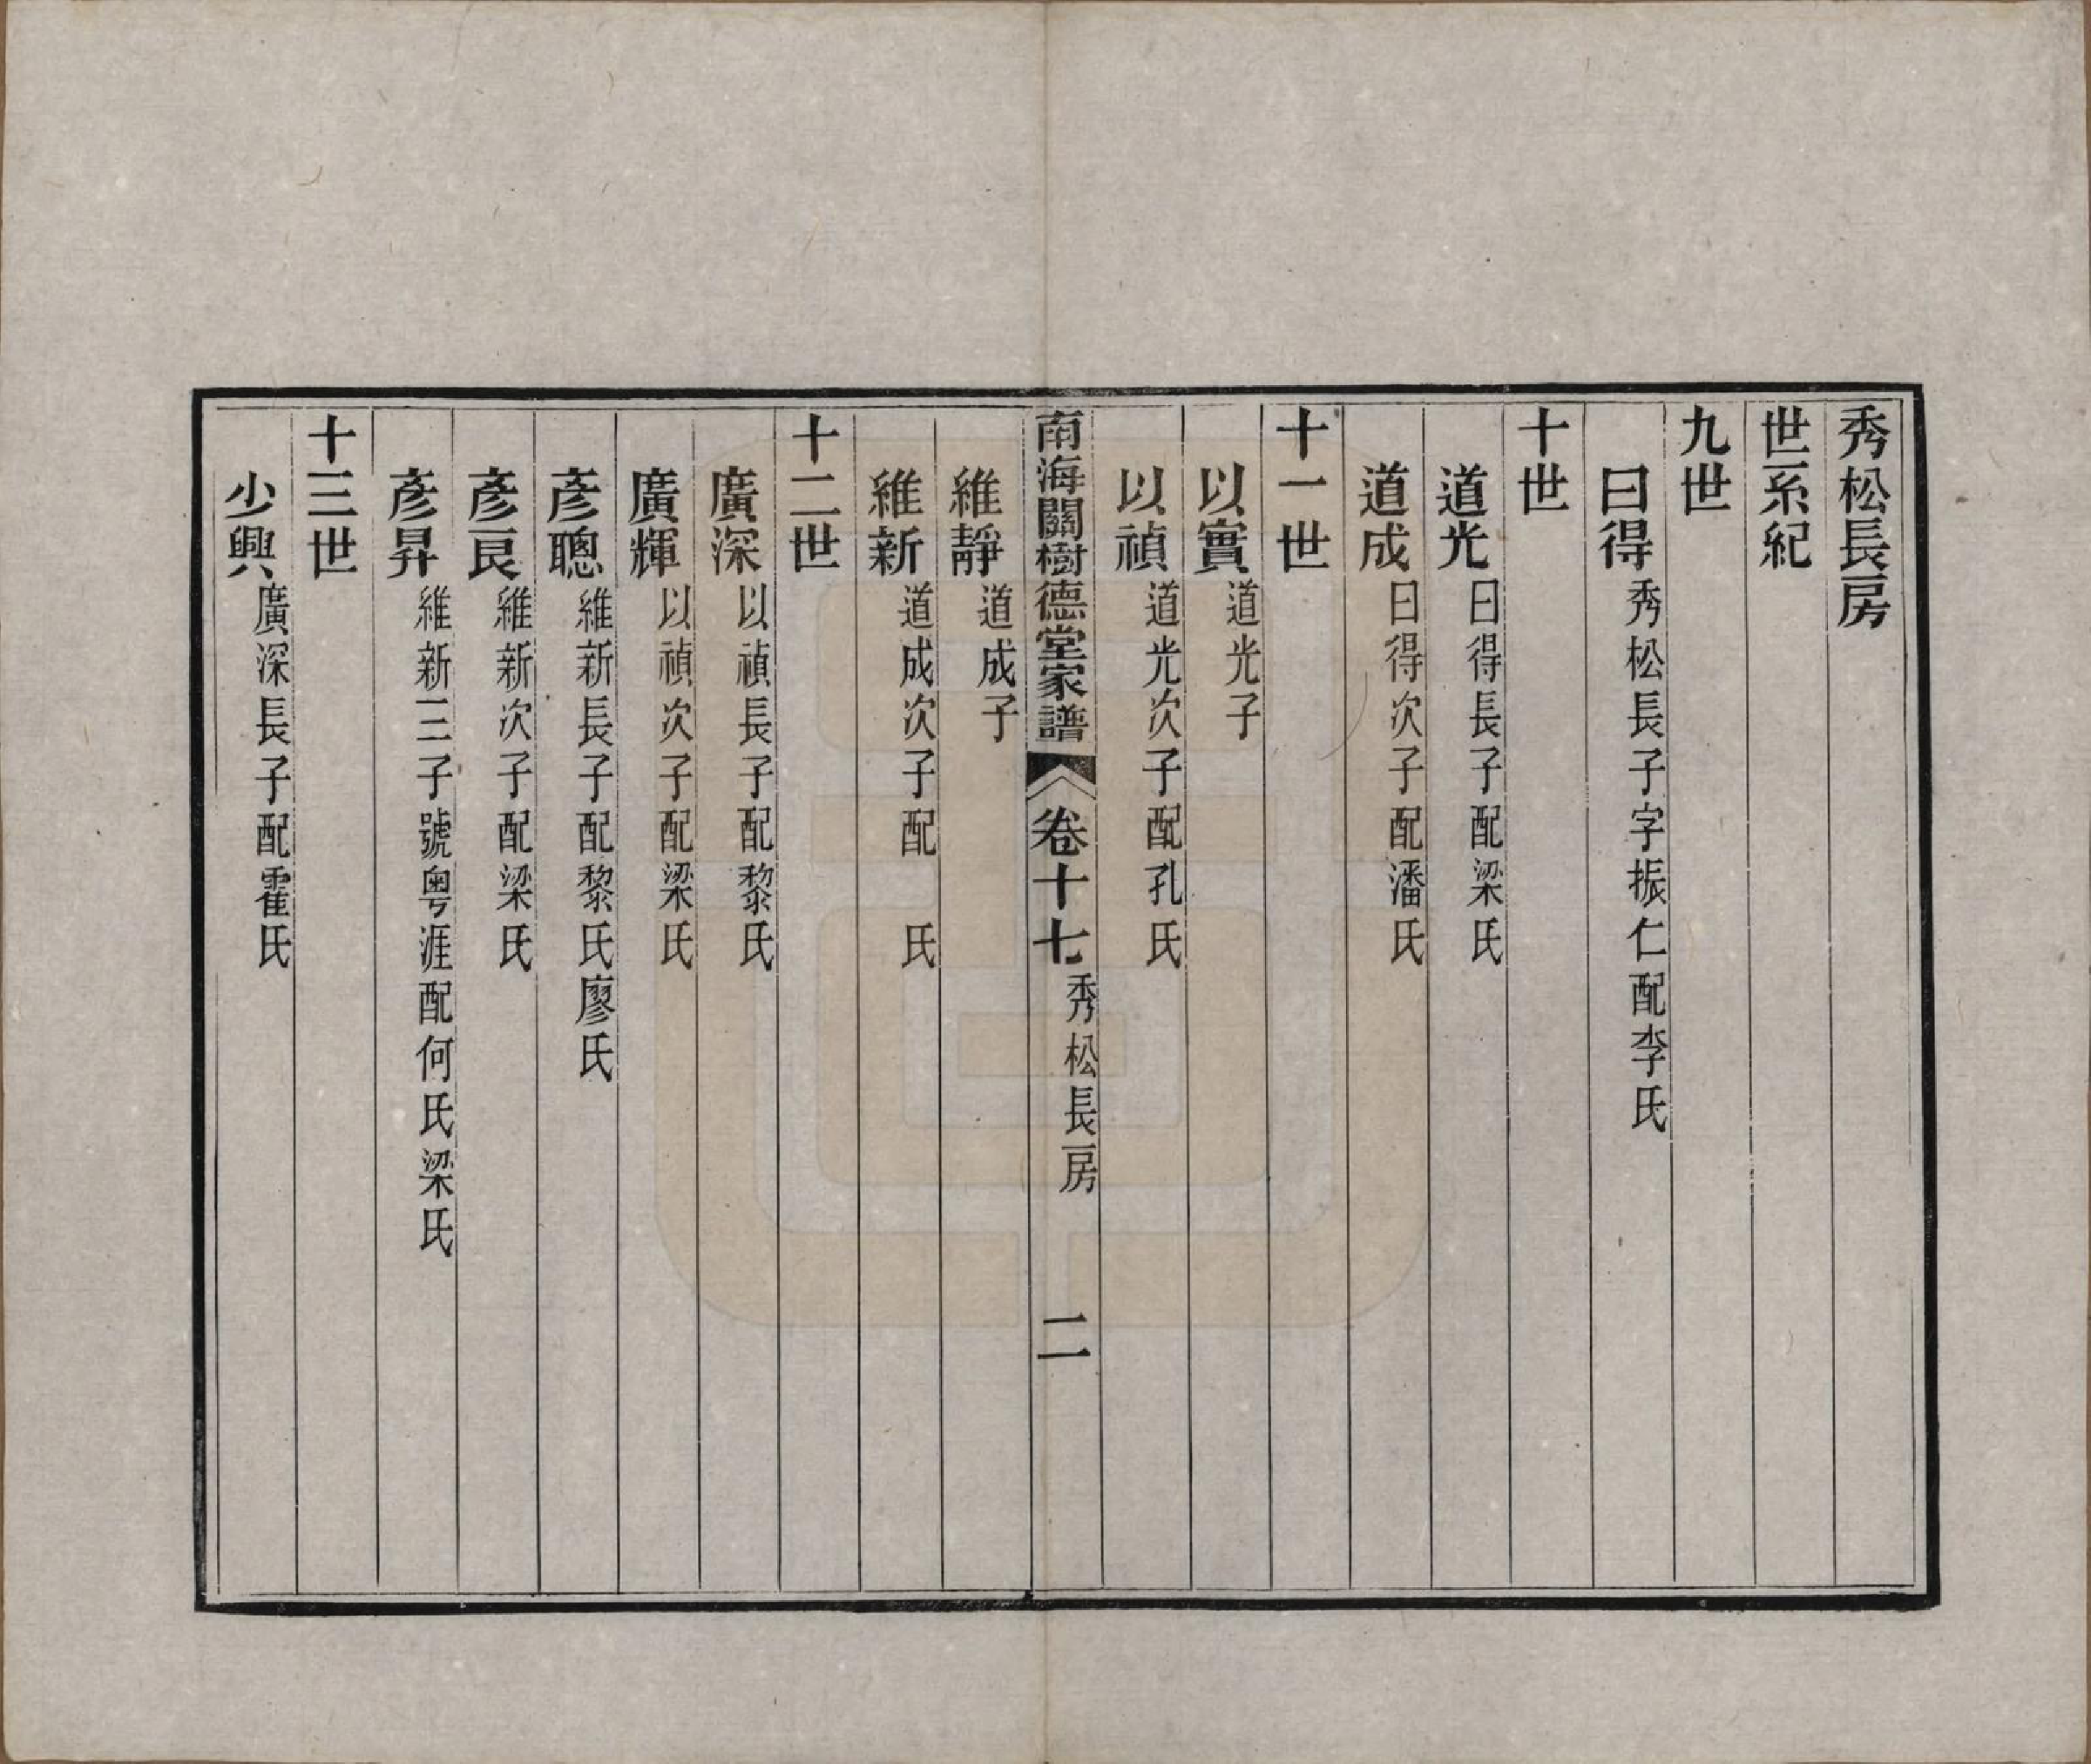 秀松長房
世系紀
九世
曰得秀松長子字振仁配李氏
十世
道光曰得長子配梁氏
道成曰得次子配潘氏
十一世
以實道光子
以禎道光次子配孔氏
南海關樹德堂家譜 卷十七 秀松長房 二
維靜道成子
維新道成次子配 氏
十二世
廣深以禎長子配黎氏
廣輝以禎次子配梁氏
彥聰維新長子配黎氏廖氏
彥良維新次子配梁氏
彥昇維新三子號粵涯配何氏梁氏
十三世
少興廣深長子配霍氏